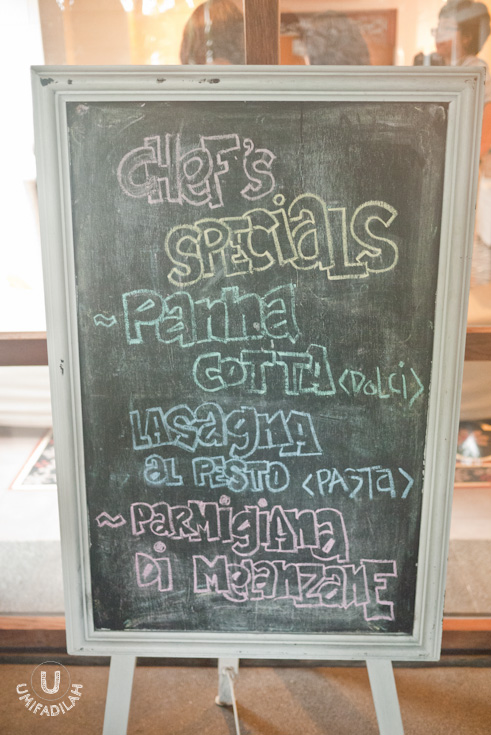 CHeF's
SPECiaLS
~Panna
COTTA <DOLCi>
LASagNA
aL PESTO <PASTa>
~PaRMigiAna
Di MeLanZaNE
U
UMIFADILAH